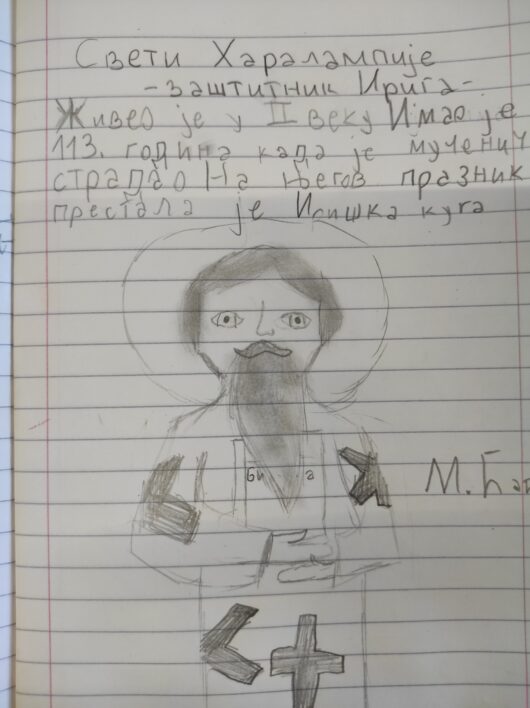 Свети Харалампије
-заштитник Ирига-
Живео је у II веку Имао је
113. година када је мученич
страдао На његов празник
престала је Иришка куга
би а
М. Ђар